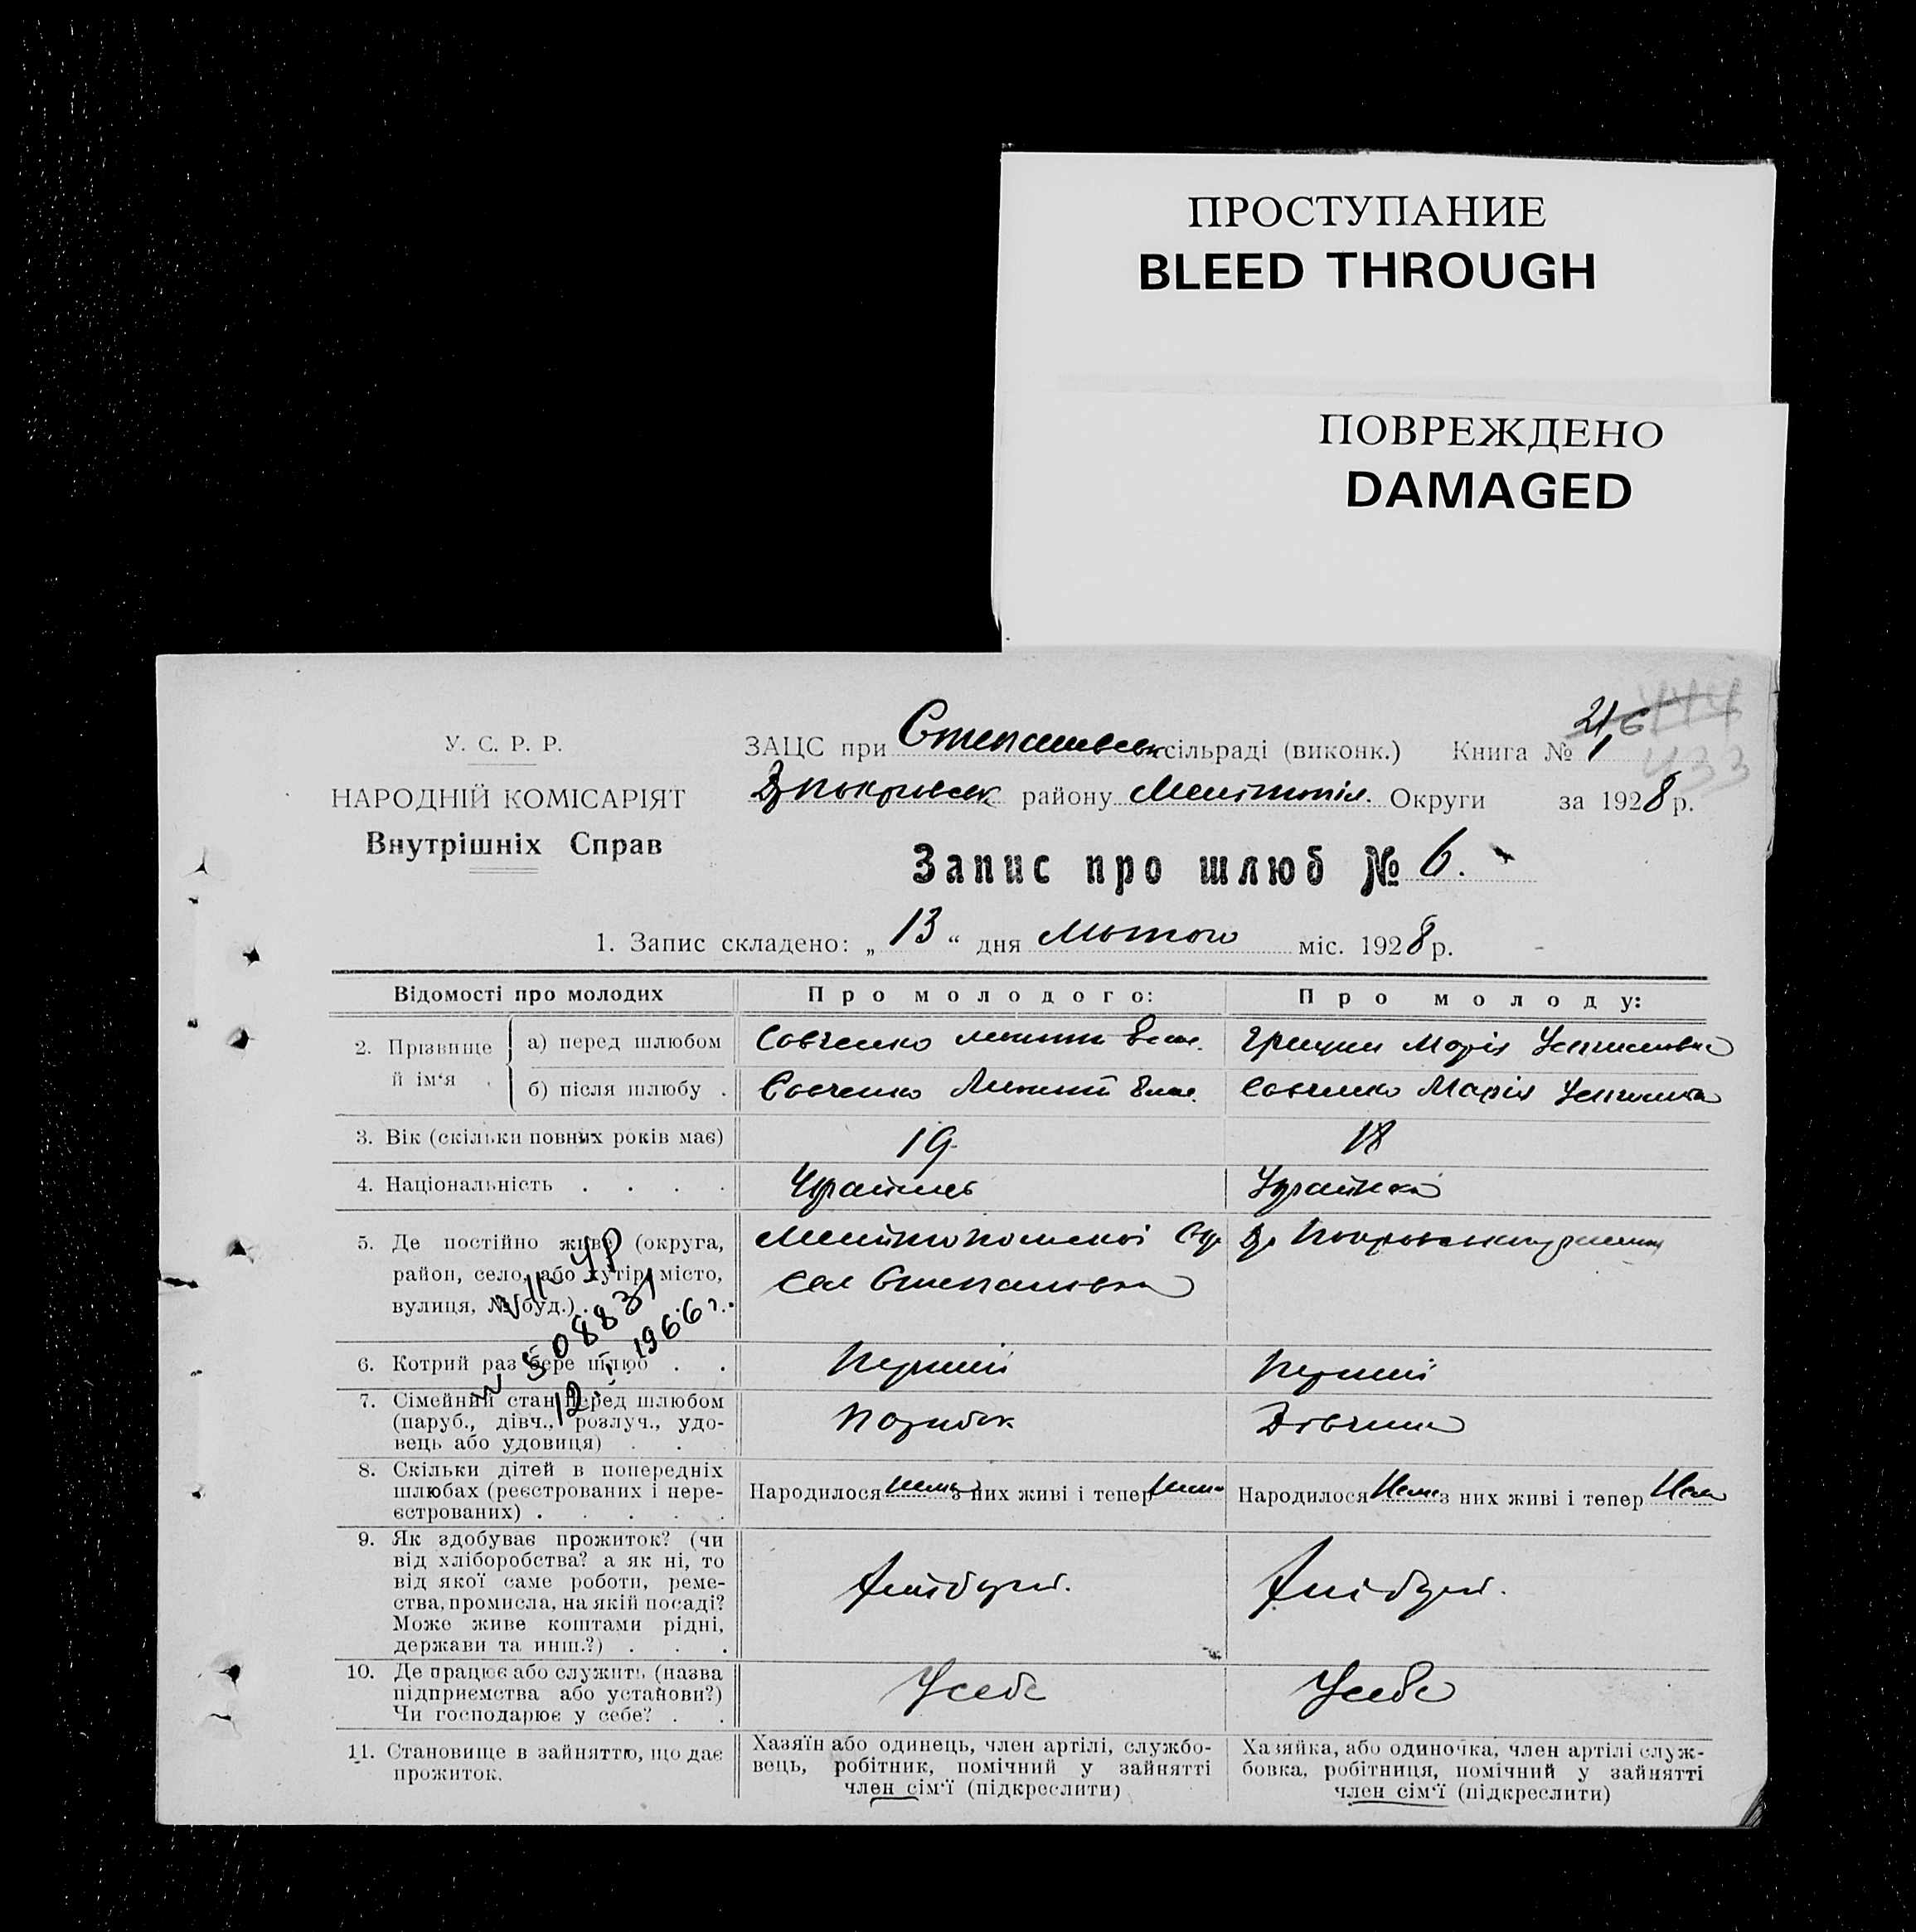 ПРОСТУПАНИЕ
BLEED THROUGH
ПОВРЕЖДЕНО
DAMAGED
У. С. Р. Р.
НАРОДНІЙ КОМІСАРІЯТ
Внутрішніх Справ
ЗАЦС при Степанівськ сільраді (виконк.) Книга № 1
433
Покровськ району Мелітопіл. Округи за 1928 р.
Запис про шлюб № 6.
1. Запис складено: „ 13 “ дня Лютого міс. 1928 р.
Відомості про молодих
Про молодого:
Про молоду:
2. Прізвище й ім‘я
а) перед шлюбом
Савченко
Марія
б) після шлюбу .
Савченко
Савченко Марія
3. Вік (скільки повних років має)
19
18
4. Національність . . . .
Українець
Українка
5. Де постійно живе (округа,
район, село, або хутір, місто,
вулиця, № буд.) . . .
Мелітопольської Окр
Сел Степанівка
Покровського району
№ 508831
12. 1966 г.
6. Котрий раз бере шлюб . .
Перший
Перший
7. Сімейний стан перед шлюбом
(паруб., дівч., розлуч., удо-
вець або удовиця) . .
Парубок
Дівчина
8. Скільки дітей в попередніх
шлюбах (реєстрованих і нере-
єстрованих) . . . . .
Народилося нема з них живі і тепер нема
Народилося Нема з них живі і тепер Нема
9. Як здобуває прожиток? (чи
від хліборобства? а як ні, то
від якої саме роботи, реме-
ства, промисла, на якій посаді?
Може живе коштами рідні,
держави та инш.?) . . .
Хлібороб.
Хлібороб.
10. Де працює або служить (назва
підприємства або установи?)
Чи господарює у себе? . .
У себе
У себе
11. Становище в зайняттю, що дає
прожиток.
Хазяїн або одинець, член артілі, службо-
вець, робітник, помічний у зайнятті
член сім‘ї (підкреслити)
Хазяйка, або одиночка, член артілі служ-
бовка, робітниця, помічний у зайнятті
член сім‘ї (підкреслити)